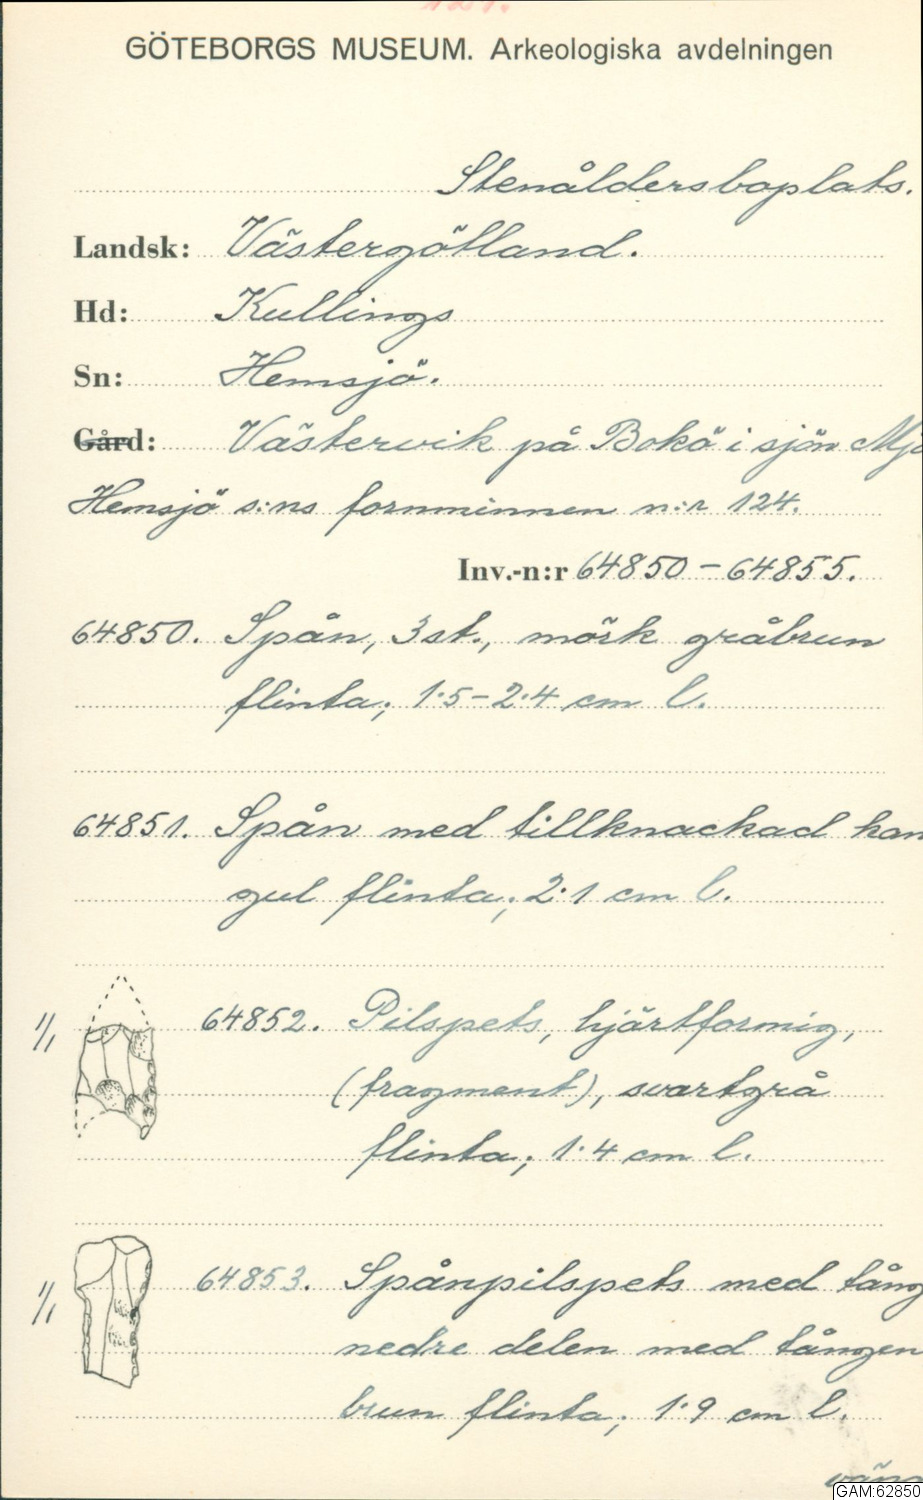 124.
GÖTEBORGS MUSEUM. Arkeologiska avdelningen
Stenåldersboplats.
Landsk: Västergötland.
Hd: Kullings
Sn: Hemsjö.
Gård: Västervik på Bokö i sjön Mjö
Hemsjö s:ns fornminnen n:r 124.
Inv.-n:r 64850 – 64855.
64850. Spån, 3 st., mörk gråbrun
flinta; 1·5 – 2·4 cm l.
64851. Spån med tillknackad kan
gul flinta; 2·1 cm l.
1/1 64852. Pilspets, hjärtformig,
(fragment), svartgrå
flinta; 1·4 cm l.
1/1 64853. Spånpilspets med tång
nedre delen med tången
brun flinta; 1·9 cm l.
vän
GAM:62850